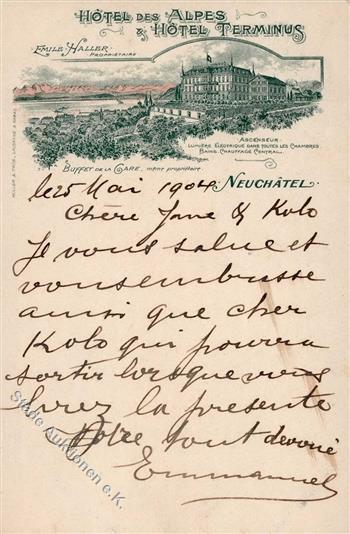 HÔTEL DES ALPES
& HÔTEL TERMINUS
EMILE HALLER
PROPRIÉTAIRE
ASCENSEUR.
LUMIÈRE ÉLECTRIQUE DANS TOUTES LES CHAMBRES
BAINS. CHAUFFAGE CENTRAL.
BUFFET DE LA GARE, même propriétaire.
NEUCHÂTEL.
le 25 Mai 1904
Chère Jane & Kolo
Je vous salue et
vous embrasse
ainsi que cher
Kolo qui pourra
sortir lorsque vous
lirez la présente
Votre tout dévoué
Emmanuel
Stade Auktionen e.K.